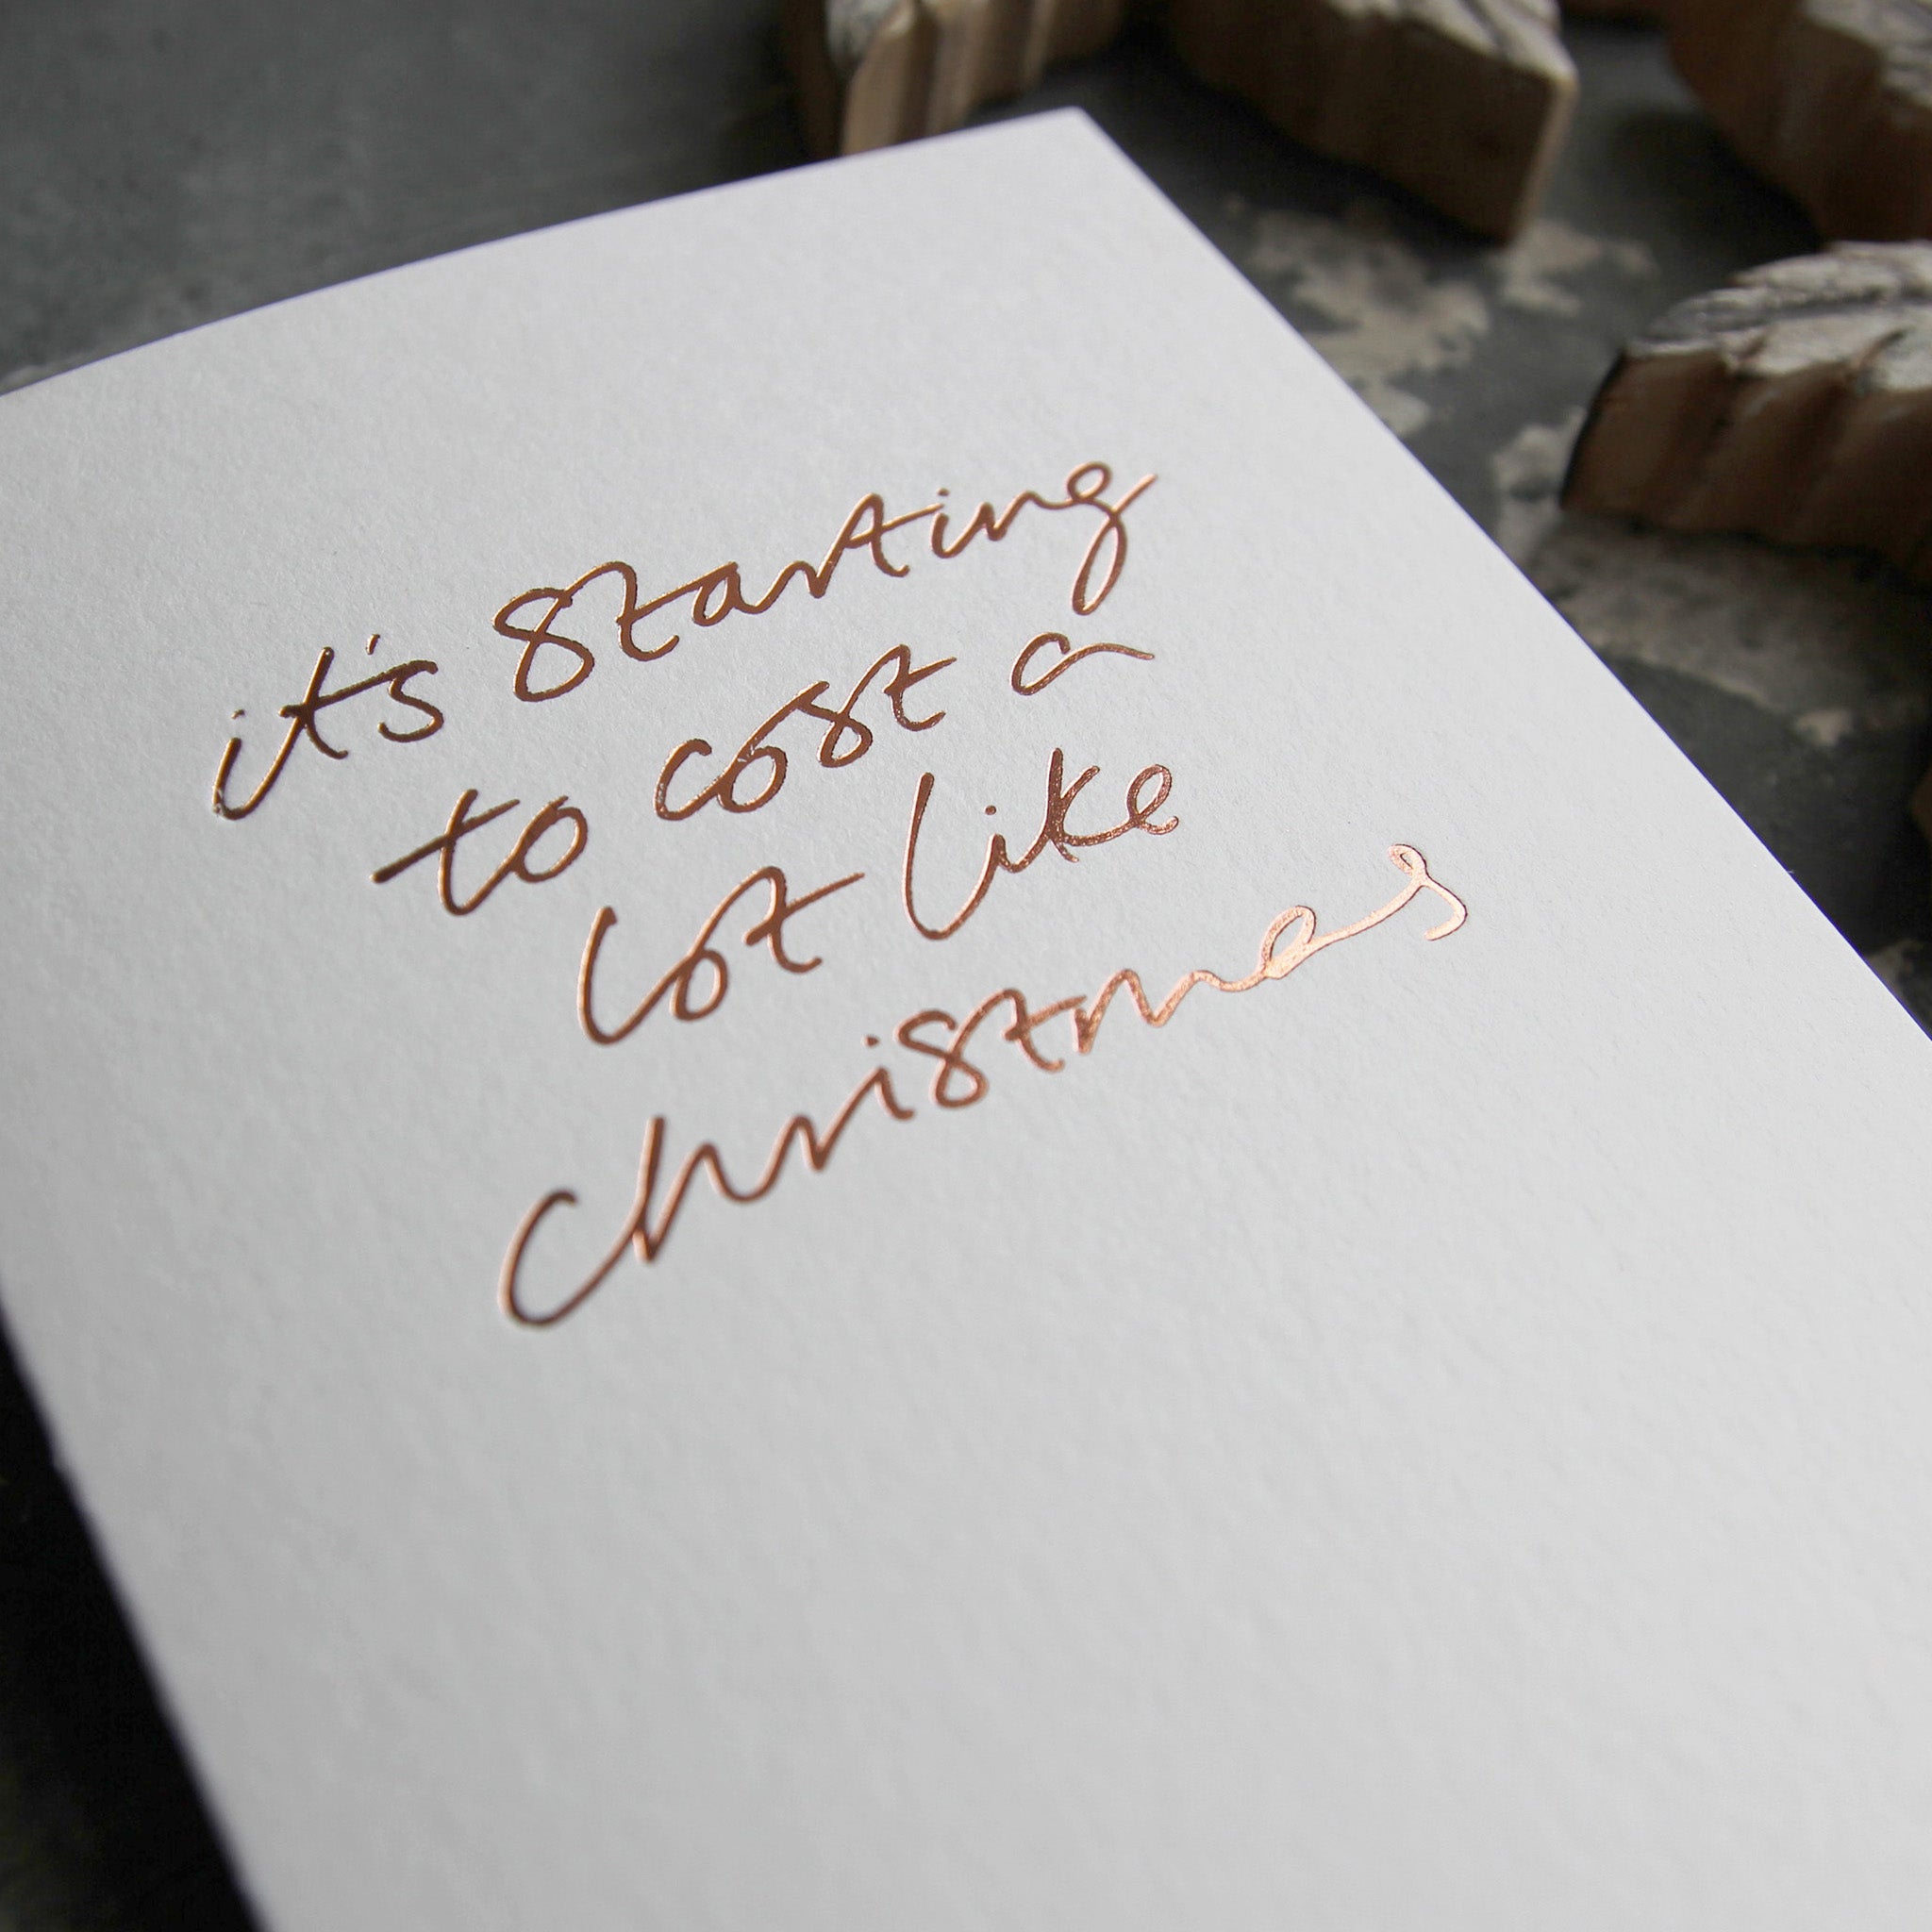 it's starting
to cost a
lot like
christmas